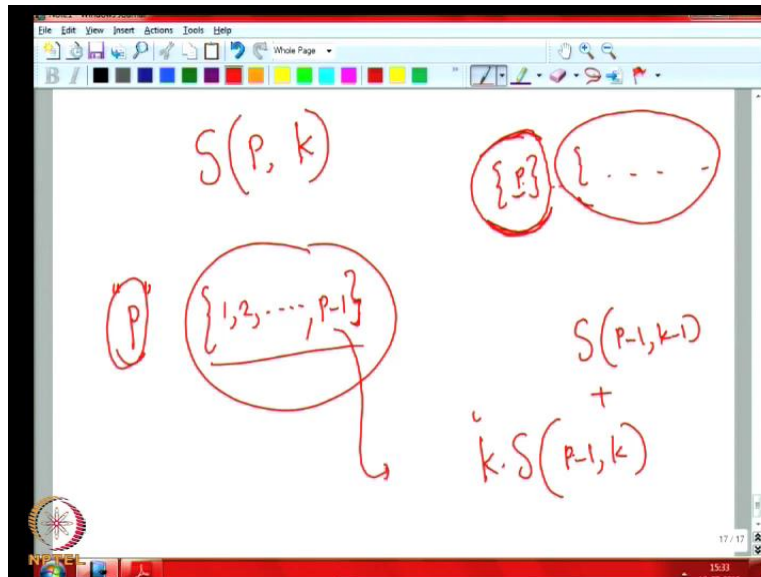 File Edit View Insert Actions Tools Help
Whole Page
B I
S(p, k)
{p} {. . . . -
"p" {1, 2, ....., p-1}
S(p-1, k-1)
+
k. S(p-1, k)
17 / 17
NPTEL
15:33